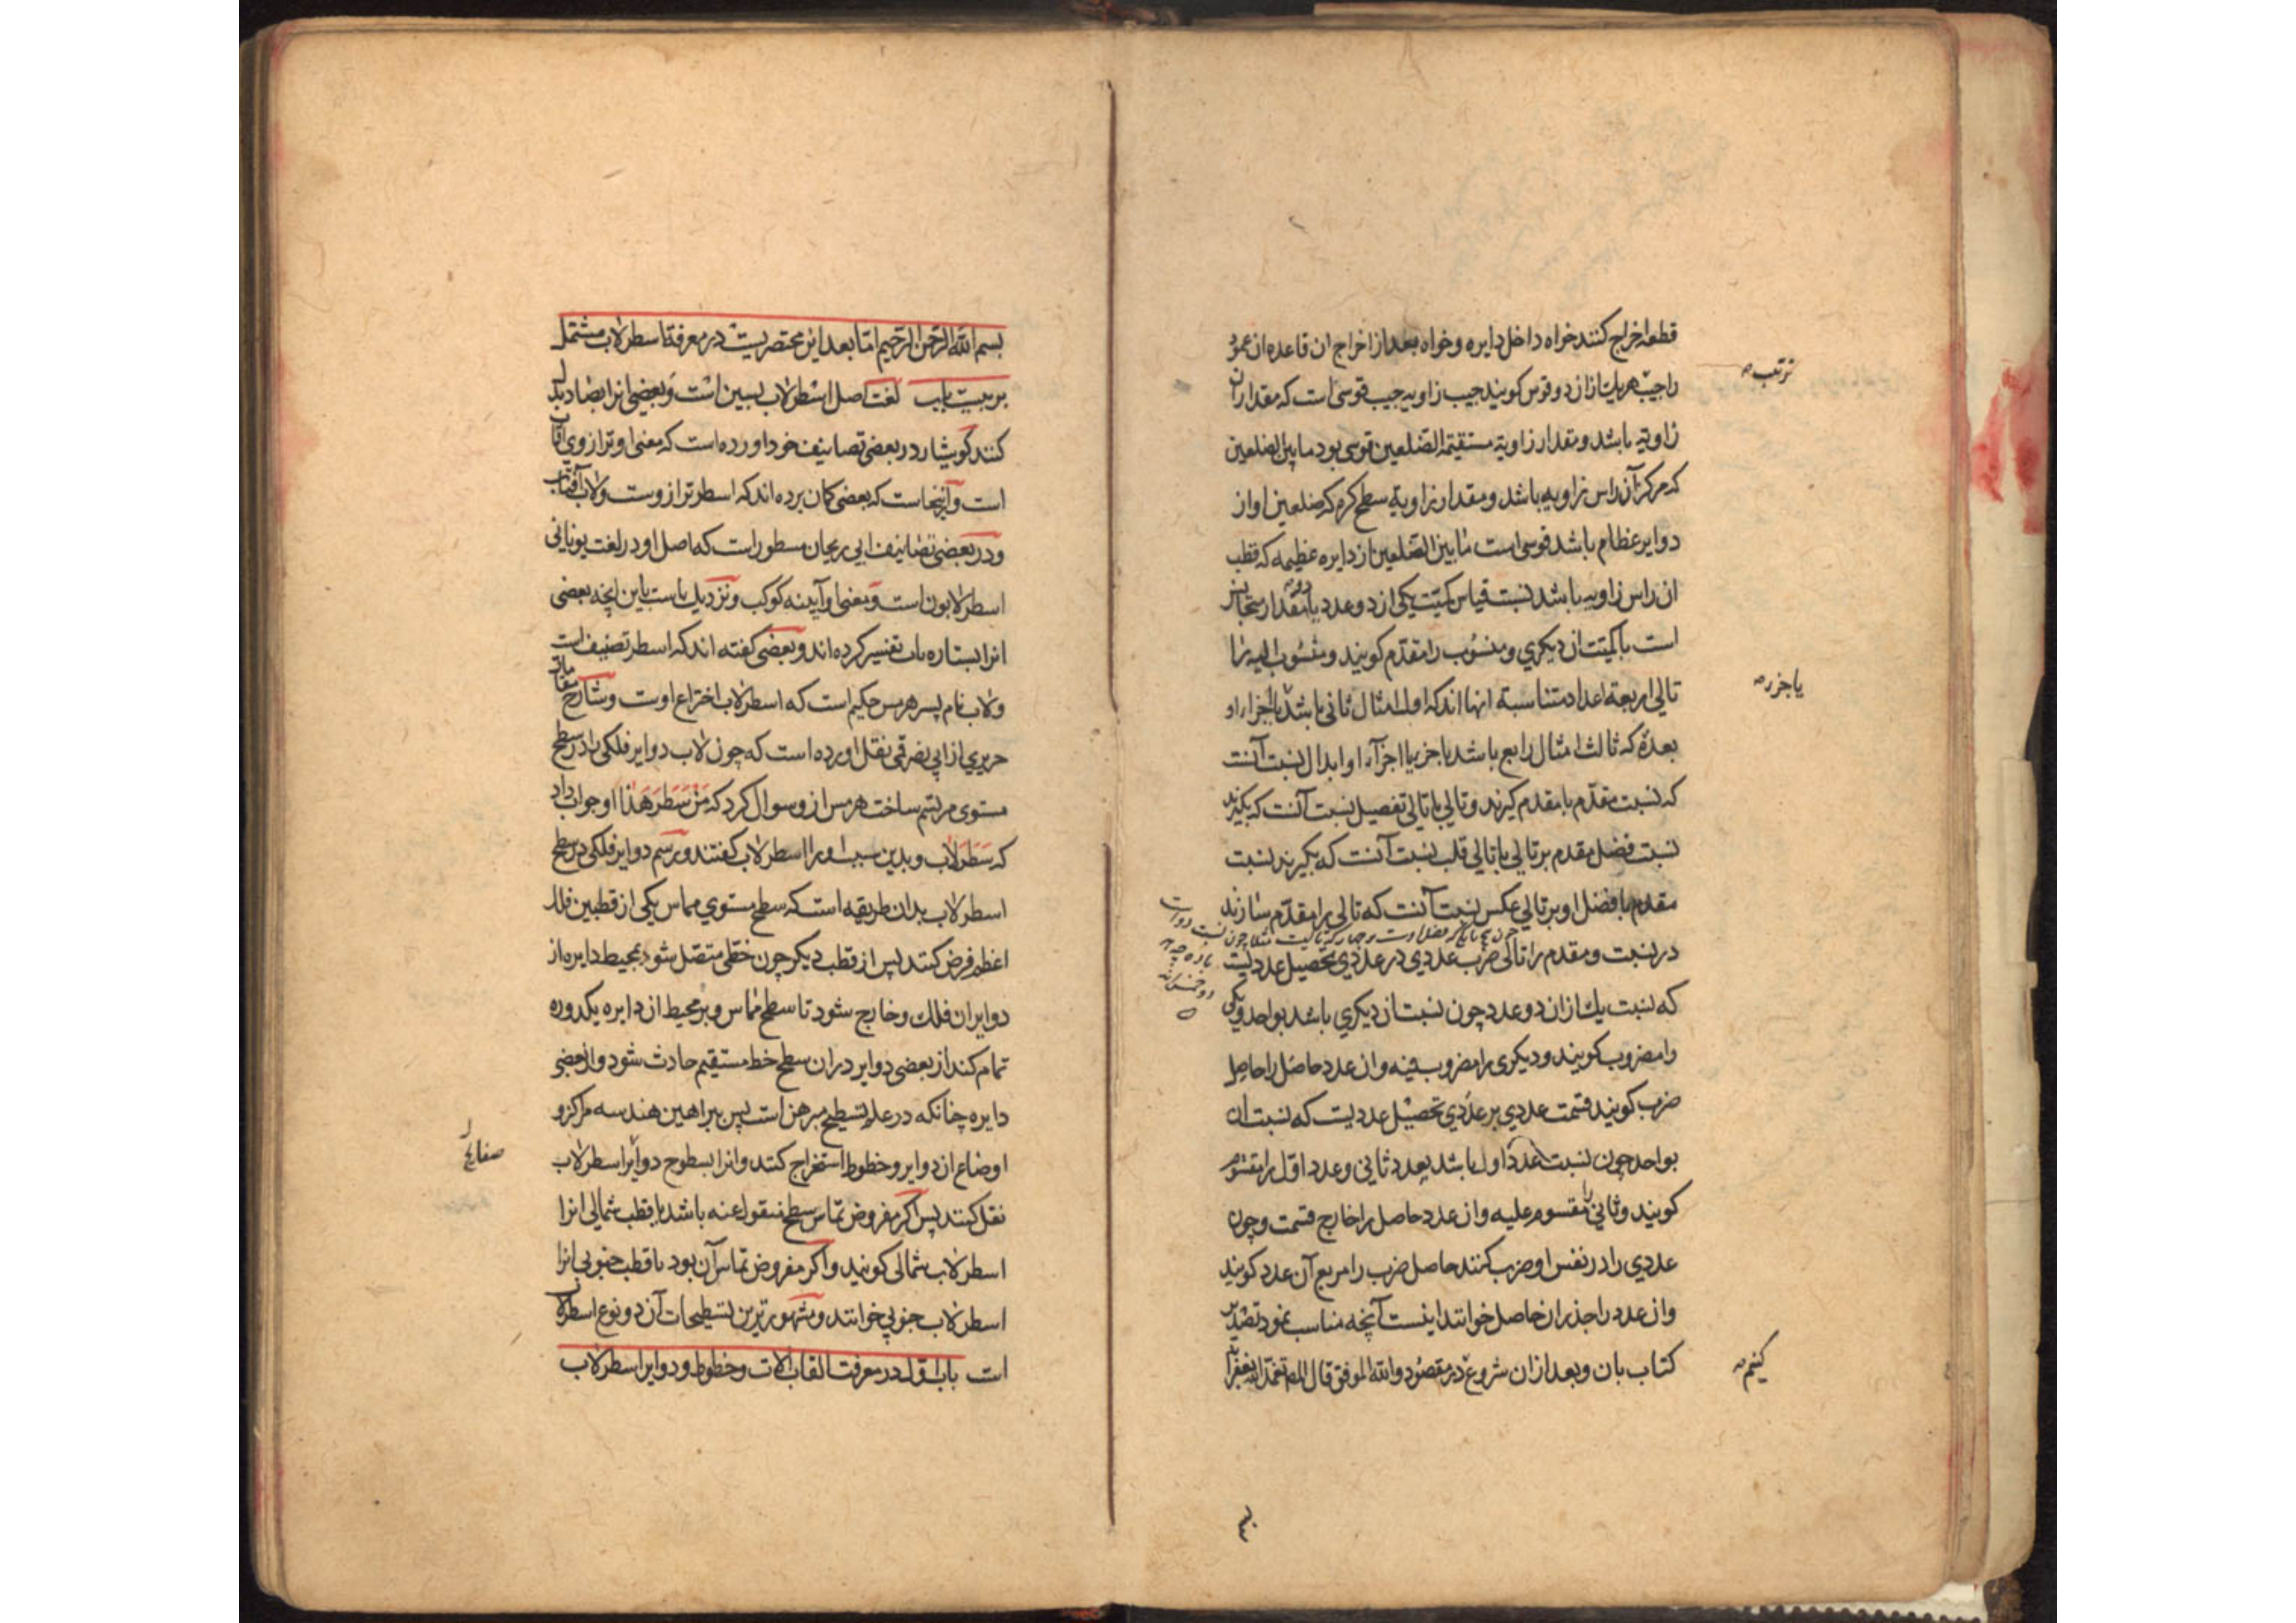 قطعه اخراج کنند خواه داخل دایره و خواه بعد از اخراج ان قاعده ان عمود
را جیب هر یک از ان دو قوس کویند جیب زاویه جیب قوسی است که مقدار ان
زاویه باشد و مقدار زاویة مستقیمة الضلعین قوسی بود مابین الضلعین
که مرکز آن راس زاویه باشد و مقدار زاویة سطح کره که ضلعین او از
دوایر عظام باشد قوسی است مابین الضلعین از دایره عظیمه که قطب
ان راس زاویه باشد نسبت قیاس کمیت یکی از دو عدد یا دو مقدار متجانس
است با کمیت ان دیکری و منسوب را مقدم کویند و منسوب الیه را
تالی اربعة اعداد متناسبة انها اند که اول امثال ثانی باشد یا اجزاء او
بعدة که ثالث امثال رابع باشد یا جزء یا اجزآء او ابدال نسبت آنست
که نسبت مقدم با مقدم کیرند و تالی با تالی تفصیل نسبت آنست که بکیرند
نسبت فضل مقدم بر تالی با تالی قلب نسبت آنست که بکیرند نسبت
مقدم با فضل او بر تالی عکس نسبت آنست که تالی را مقدم سازند
در نسبت و مقدم را تالی ضرب عددی در عددی تحصیل عددیست
که نسبت یک از ان دو عدد چون نسبت ان دیکری باشد بواحد و یکی
را مضروب کویند و دیکری را مضروب فیه و ان عدد حاصل را حاصل
ضرب کویند قسمت عددی بر عددی تحصیل عددیست که نسبت ان
بواحد چون نسبت عدد اول باشد بعدد ثانی و عدد اول را مقسوم
کویند و ثانی را مقسوم علیه و ان عدد حاصل را خارج قسمت و چون
عددی را در نفس او ضرب کنند حاصل ضرب را مربع آن عدد کویند
و ان عدد را جذر ان حاصل خوانند اینست آنچه مناسب نمود تصدیر
کتاب بان و بعد از ان شروع در مقصود والله الموفق قال المص تغمده الله بغفرانه
نرتب
یا جزء
کنیم
بسم الله الرحمن الرحیم اما بعد این مختصریست در معرفة اسطرلاب مشتمل
بر بیست باب لغت اصل اسطرلاب بسین است و بعضی انرا بصاد بدل
کنند کوشیار در بعضی تصانیف خود اورده است که معنی او ترازوی آفتاب
است و آنجاست که بعضی کمان برده اند که اسطر ترازوست و لاب آفتاب
و در بعضی تصانیف ابی ریحان مسطور است که اصل او در لغت یونانی
اسطرلابون است و معنی او آیینه کوکب و نزدیک است باین انچه بعضی
انرا بستاره یاب تفسیر کرده اند و بعضی کفته اند که اسطر تصنیف است
و لاب نام پسر هرمس حکیم است که اسطرلاب اختراع اوست و شارح مقامات
حریری از ابی نصر قمی نقل اورده است که چون لاب دوایر فلکی را در سطح
مستوی مرتسم ساخت هرمس از و سوال کرد که مَنْ سَطَرَ هَذا او جواب داد
که سَطَرَ لاب و بدین سبب او را اسطرلاب کفتند و رسم دوایر فلکی در سطح
اسطرلاب بدان طریقه است که سطح مستوی مماس یکی از قطبین فلک
اعظم فرض کنند پس از قطب دیکر چون خطی متصل شود بمحیط دایره از
دوایر ان فلک و خارج شود تا سطح مماس و بر محیط ان دایره یکدوره
تمام کند از بعضی دوایر در ان سطح خط مستقیم حادث شود و از بعضی
دایره چنانکه در علم تسطیح مبرهن است پس ببراهین هندسه مراکز و
اوضاع ان دوایر و خطوط استخراج کنند و انرا بسطوح دوایر اسطرلاب
نقل کنند پس اکر مفروض تماس سطح منقول عنه باشد با قطب شمالی انرا
اسطرلاب شمالی کویند و اکر مفروض تماس آن بود با قطب جنوبی انرا
اسطرلاب جنوبی خوانند و مشهورترین تسطیحات آن دو نوع اسطرلاب
است باب اول در معرفت القاب الات و خطوط و دوایر اسطرلاب
صفایح